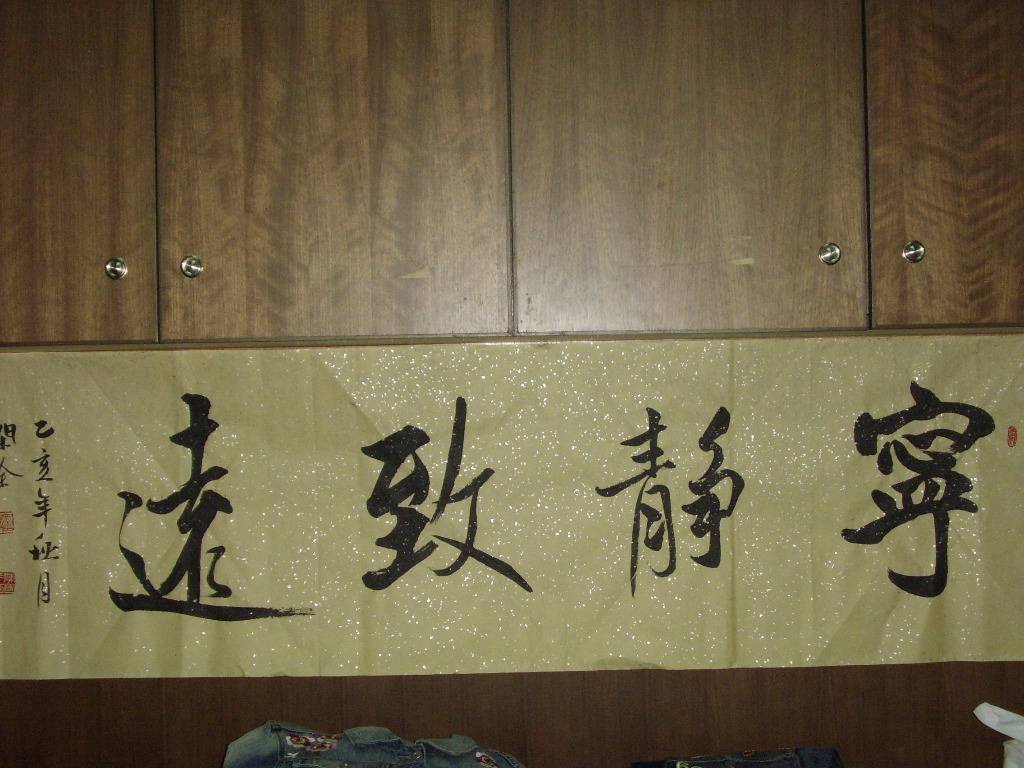 寧靜致遠
乙亥年秋月